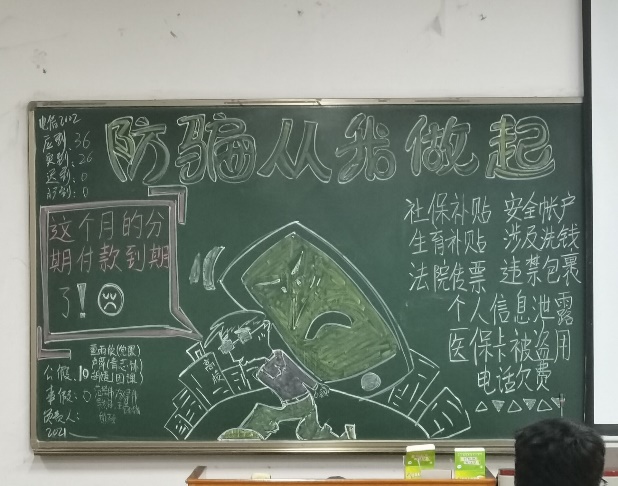 防骗从我做起
电信2002
应到:36
实到:26
迟到:0
早到:0
这个月的分
期付款到期
了!
社保补贴 安全帐户
生育补贴 涉及洗钱
法院传票 违禁包裹
个人信息泄露
医保卡被盗用
电话欠费
公假:10
事假:0
负责人:
2021